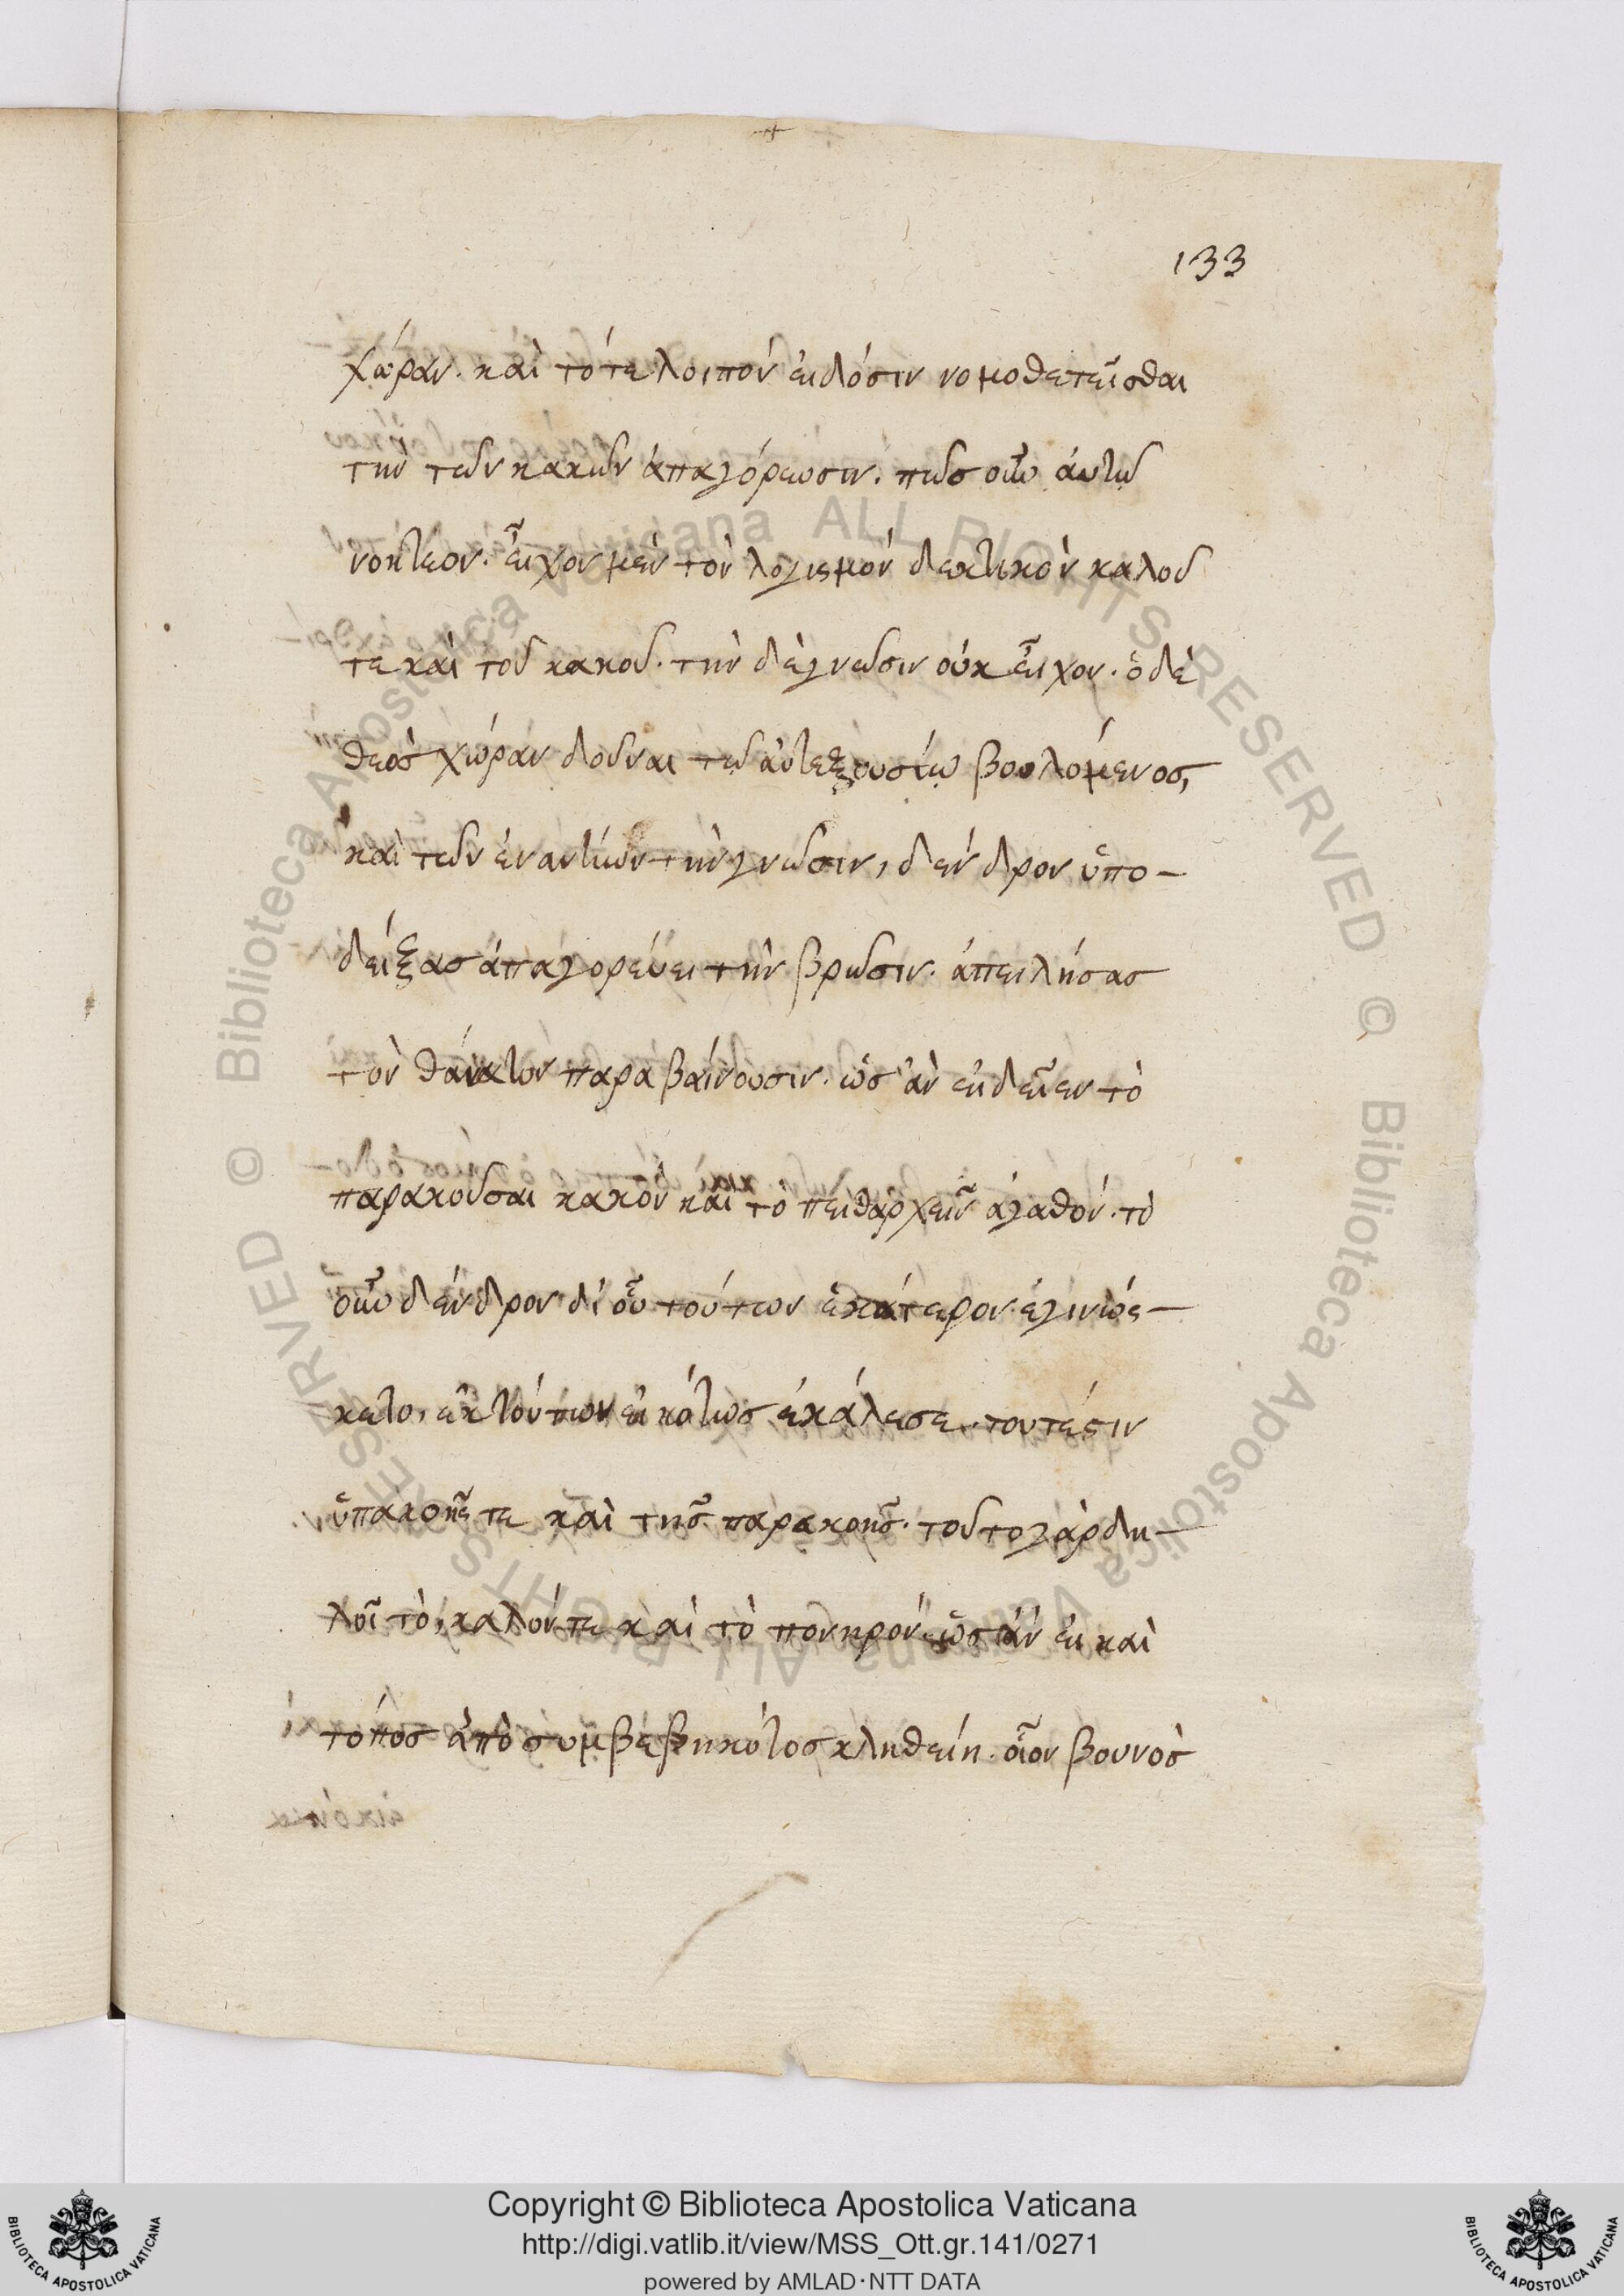 133
χώραν. καὶ τότε λοιπόν εἰδόσιν νομοθετεῖσθαι
τὴν τῶν κακῶν ἀπαγόρευσιν. πῶς οὖν αὐτῷ
νοητέον. εἶχον μὲν τὸν λογισμόν δεκτικὸν καλοῦ
τε καὶ τοῦ κακοῦ. τὴν δὲ γνῶσιν οὐκ εἶχον. ὁ δὲ
θεὸς χώραν δοῦναι τῷ αὐτεξουσίῳ βουλόμενος,
καὶ τῶν ἐναντίων τὴν γνῶσιν, δένδρον ὑπο-
δείξας ἀπαγορεύει τὴν βρῶσιν. ἀπειλήσας
τὸν θάνατον παραβαίνουσιν. ὡς ἂν εἰδεῖεν τὸ
παρακοῦσαι κακὸν καὶ τὸ πειθαρχεῖν ἀγαθόν. τὸ
οὖν δένδρον δι' οὗ τούτων ἑκάτερον ἐγινώς-
κετο, ἐκ τούτων εἰκότως ἐκάλεσε. τουτέστιν
ὑπακοῆς τε καὶ τῆς παρακοῆς. τοῦτο γὰρ δη-
λοῖ τὸ, καλόν τε καὶ τὸ πονηρόν. ὡς ἂν εἰ καὶ
τόπος ἀπὸ συμβεβηκότος κληθείη. οἷον βουνὸς
Copyright © Biblioteca Apostolica Vaticana
http://digi.vatlib.it/view/MSS_Ott.gr.141/0271
powered by AMLAD·NTT DATA
BIBLIOTECA APOSTOLICA VATICANA
BIBLIOTECA APOSTOLICA VATICANA
© Biblioteca Apostolica Vaticana ALL RIGHTS RESERVED © Biblioteca Apostolica Vaticana ALL RIGHTS RESERVED